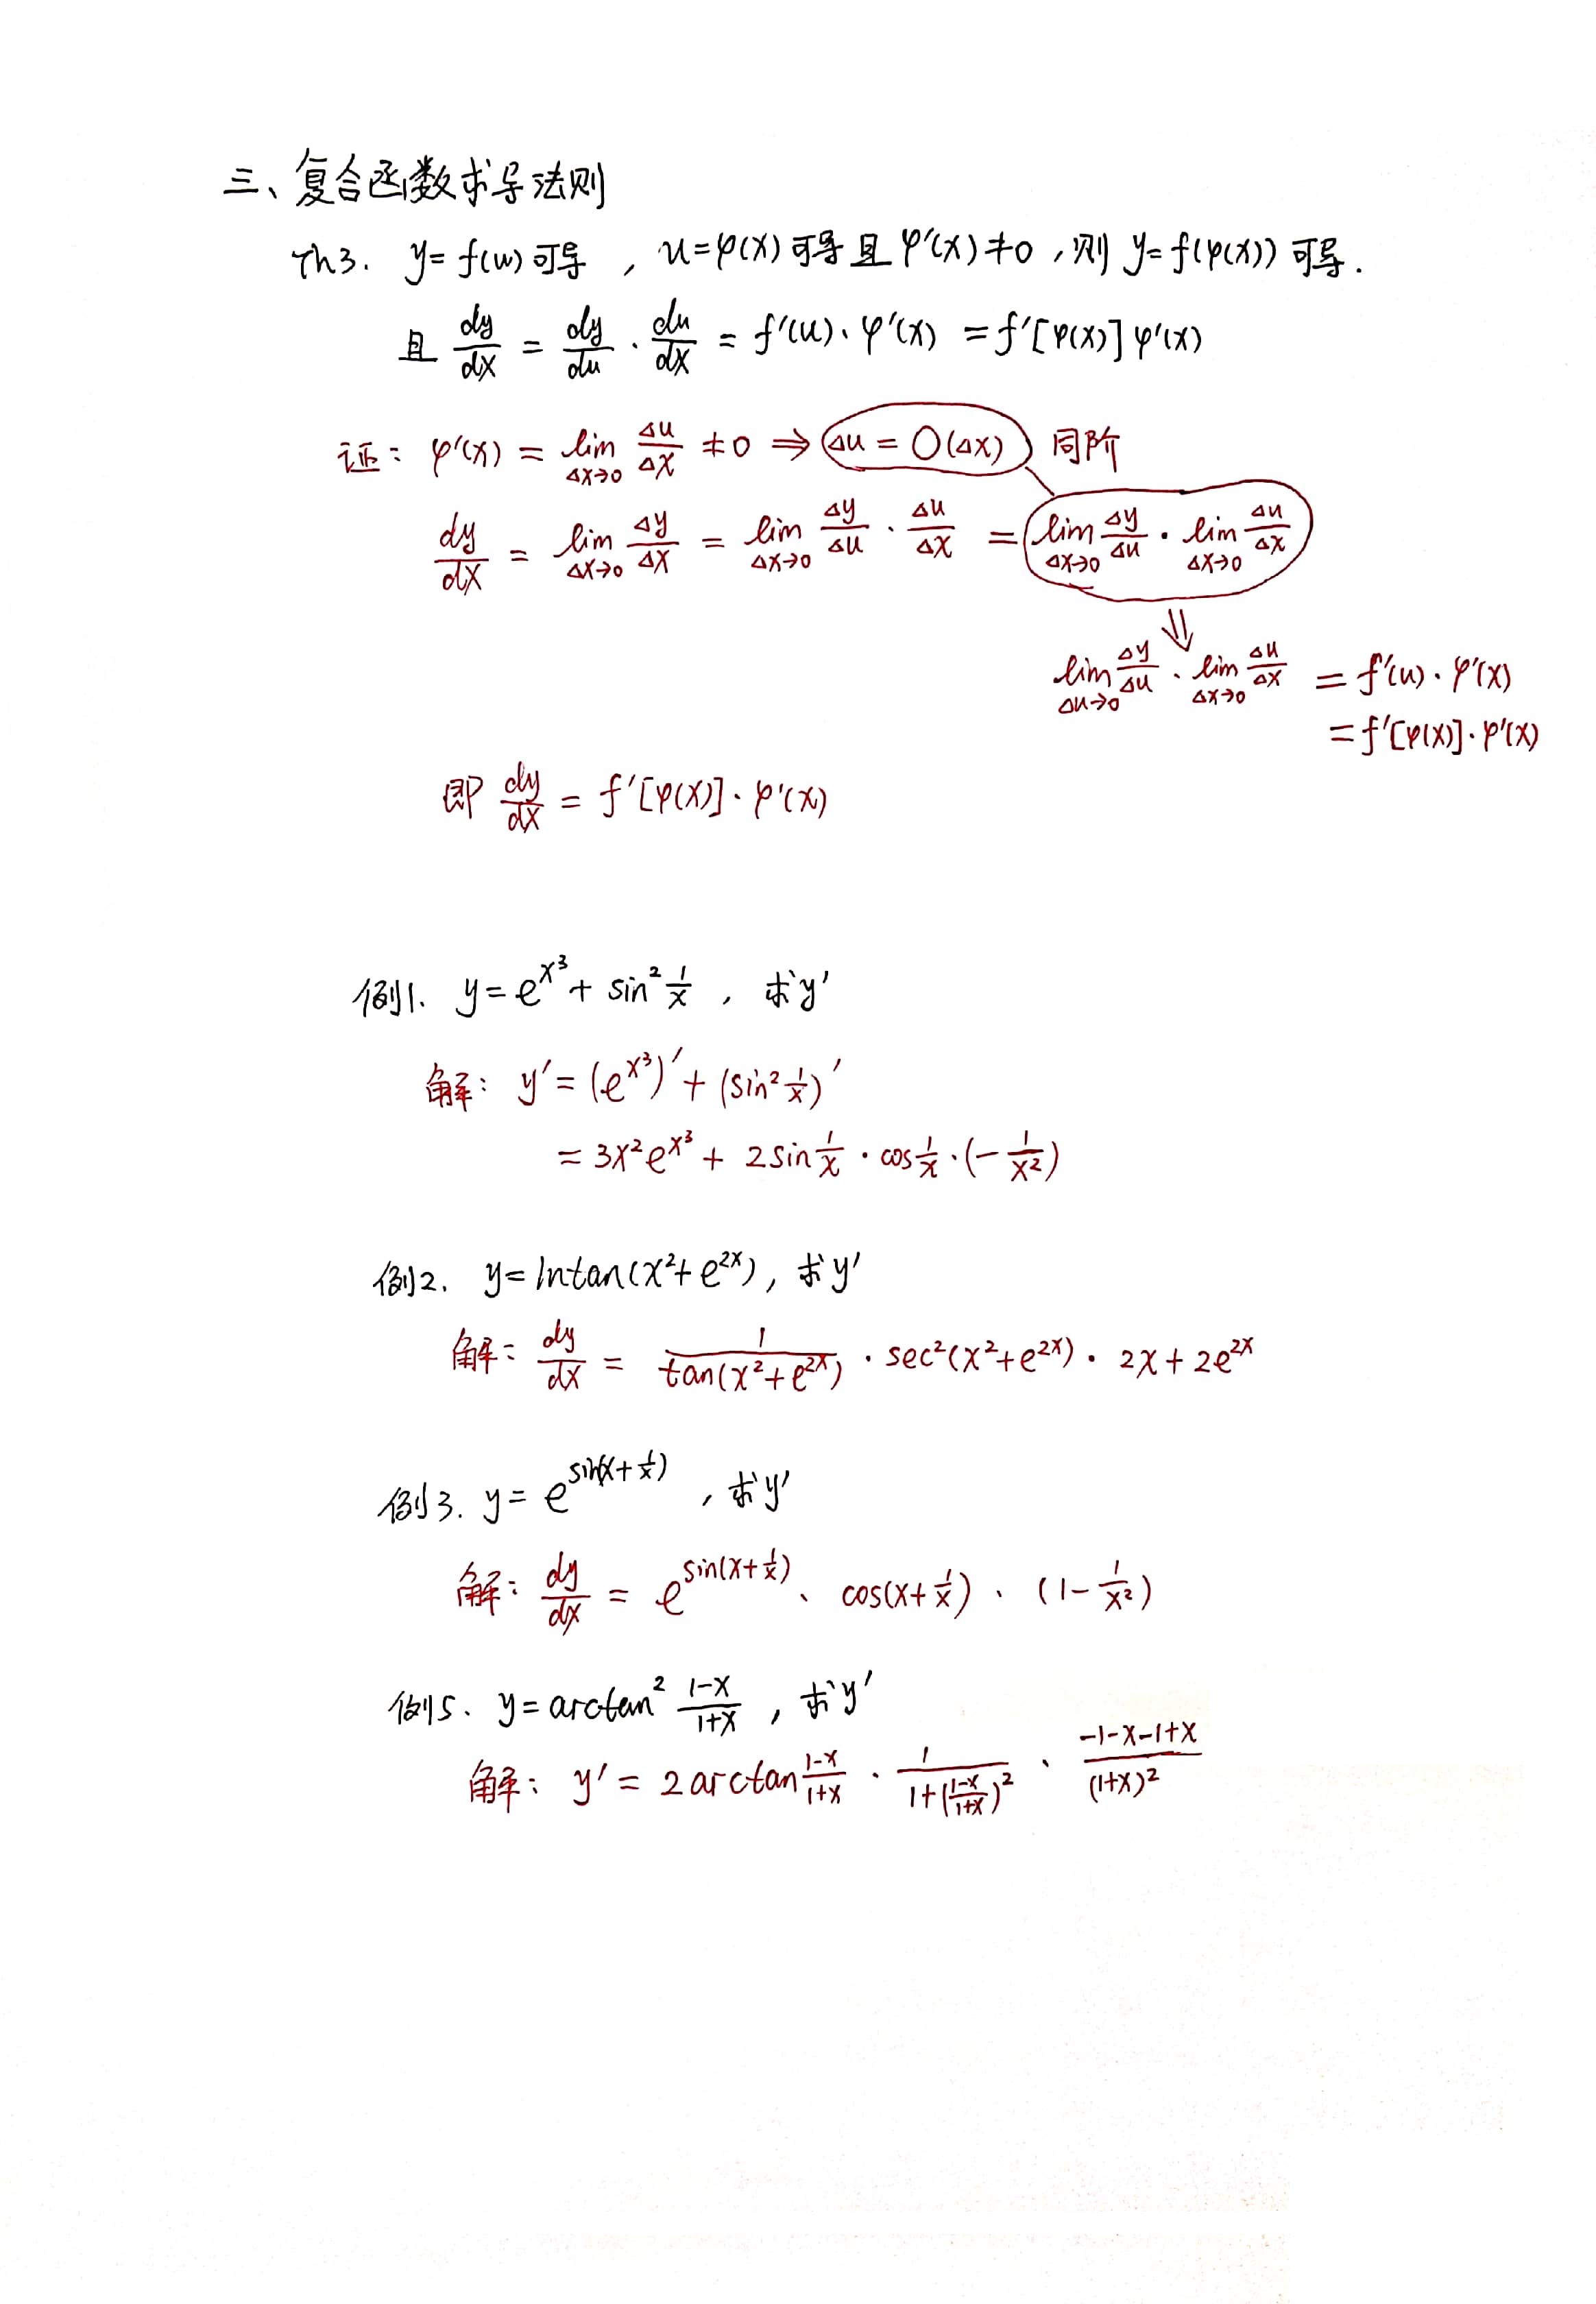 三、复合函数求导法则
Th3. y=f(u)可导，u=φ(x)可导且φ′(x)≠0，则 y=f(φ(x))可导.
且 dy/dx = dy/du · du/dx = f′(u)·φ′(x) = f′[φ(x)]φ′(x)
证：φ′(x) = lim_{Δx→0} Δu/Δx ≠0 ⇒ Δu = O(Δx) 同阶
dy/dx = lim_{Δx→0} Δy/Δx = lim_{Δx→0} Δy/Δu · Δu/Δx = lim_{Δx→0} Δy/Δu · lim_{Δx→0} Δu/Δx
⇓
lim_{Δu→0} Δy/Δu · lim_{Δx→0} Δu/Δx = f′(u)·φ′(x)
= f′[φ(x)]·φ′(x)
即 dy/dx = f′[φ(x)]·φ′(x)
例1. y=e^{x³}+ sin² 1/x ，求y′
解：y′= (e^{x³})′+ (sin² 1/x)′
= 3x²e^{x³} + 2sin 1/x · cos 1/x ·(- 1/x²)
例2. y=lntan(x²+e^{2x})，求y′
解：dy/dx = 1/tan(x²+e^{2x}) · sec²(x²+e^{2x}) · 2x+2e^{2x}
例3. y= e^{sin(x+1/x)} ，求y′
解：dy/dx = e^{sin(x+1/x)} · cos(x+1/x) · (1- 1/x²)
例5. y=arctan² (1-x)/(1+x) ，求y′
解：y′= 2arctan (1-x)/(1+x) · 1/(1+((1-x)/(1+x))²) · (-1-x-1+x)/(1+x)²